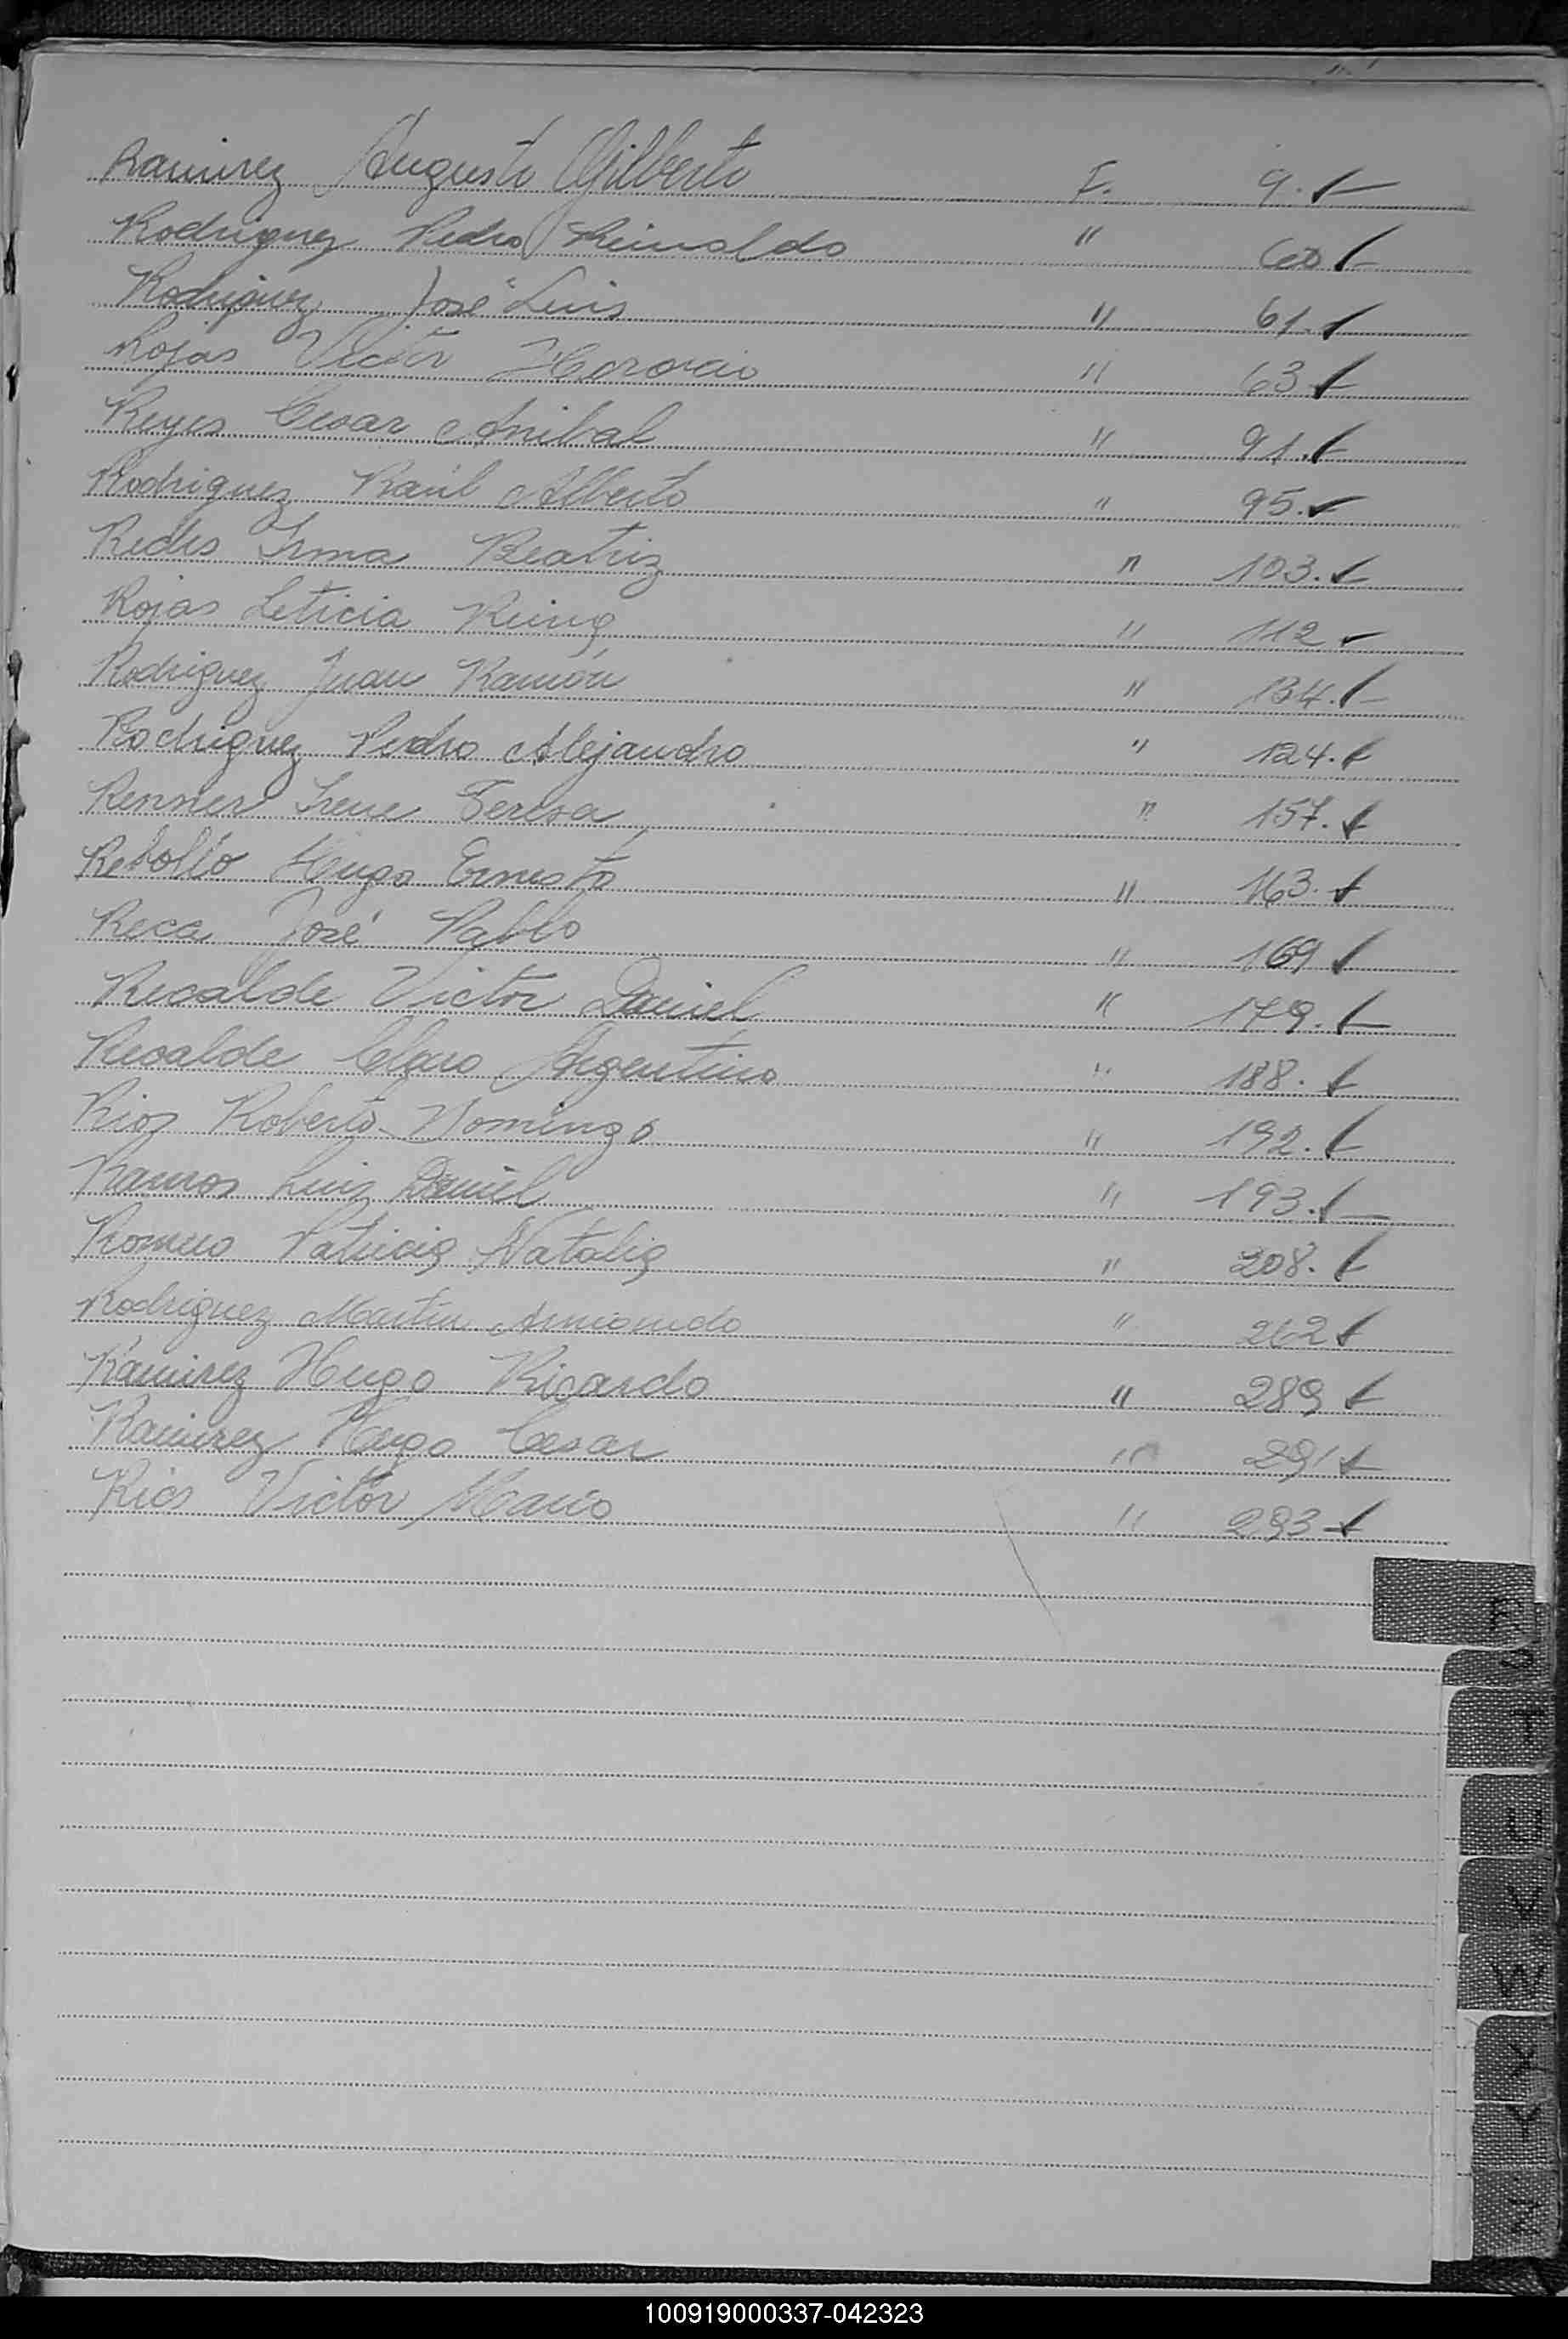 Ramirez Augusto Gilberto F. 9.
Rodriguez Pedro Reinaldo " 60
Rodriguez José Luis " 61.
Rojas Victor Horacio " 63
Reyes Cesar Anibal " 91.
Rodriguez Raúl Alberto " 95.
Irma Beatriz " 103.
Rojas Leticia " 112
Rodriguez Juan Ramón " 134.
Rodriguez Pedro Alejandro " 124.
Renner Irene Teresa " 157.
Rebollo Hugo Ernesto " 163.
Reca José Pablo " 169
Recalde Victor Daniel " 179.
Recalde Claro Argentino " 188.
Rios Roberto Domingo " 192.
Ramos Luis Daniel " 193.
Romero Patricia Natalia " 208.
Rodriguez Martin Armando " 262
Ramirez Hugo Ricardo " 289
Ramirez Hugo Cesar " 291
Rios Victor Mario " 293
T
U
V
W
X
Y
Z
100919000337-042323